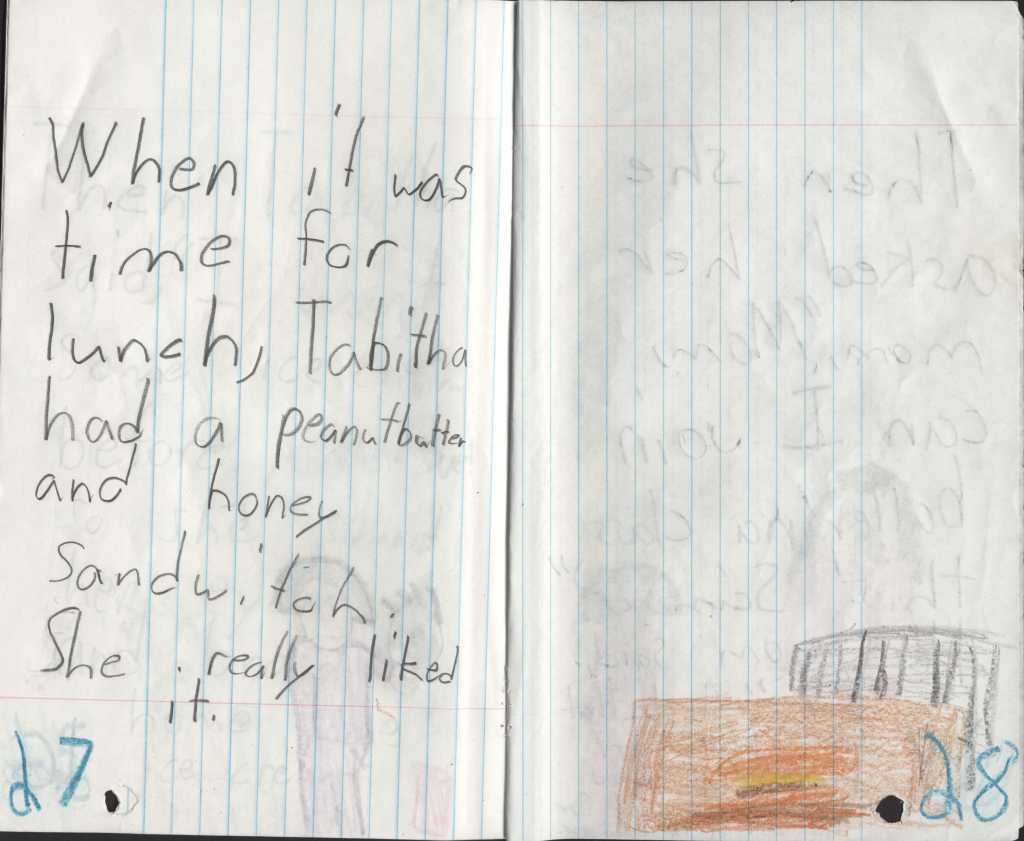 When it was
time for
lunch, Tabitha
had a peanutbutter
and honey
sandwitch.
She really liked
it.
27
28